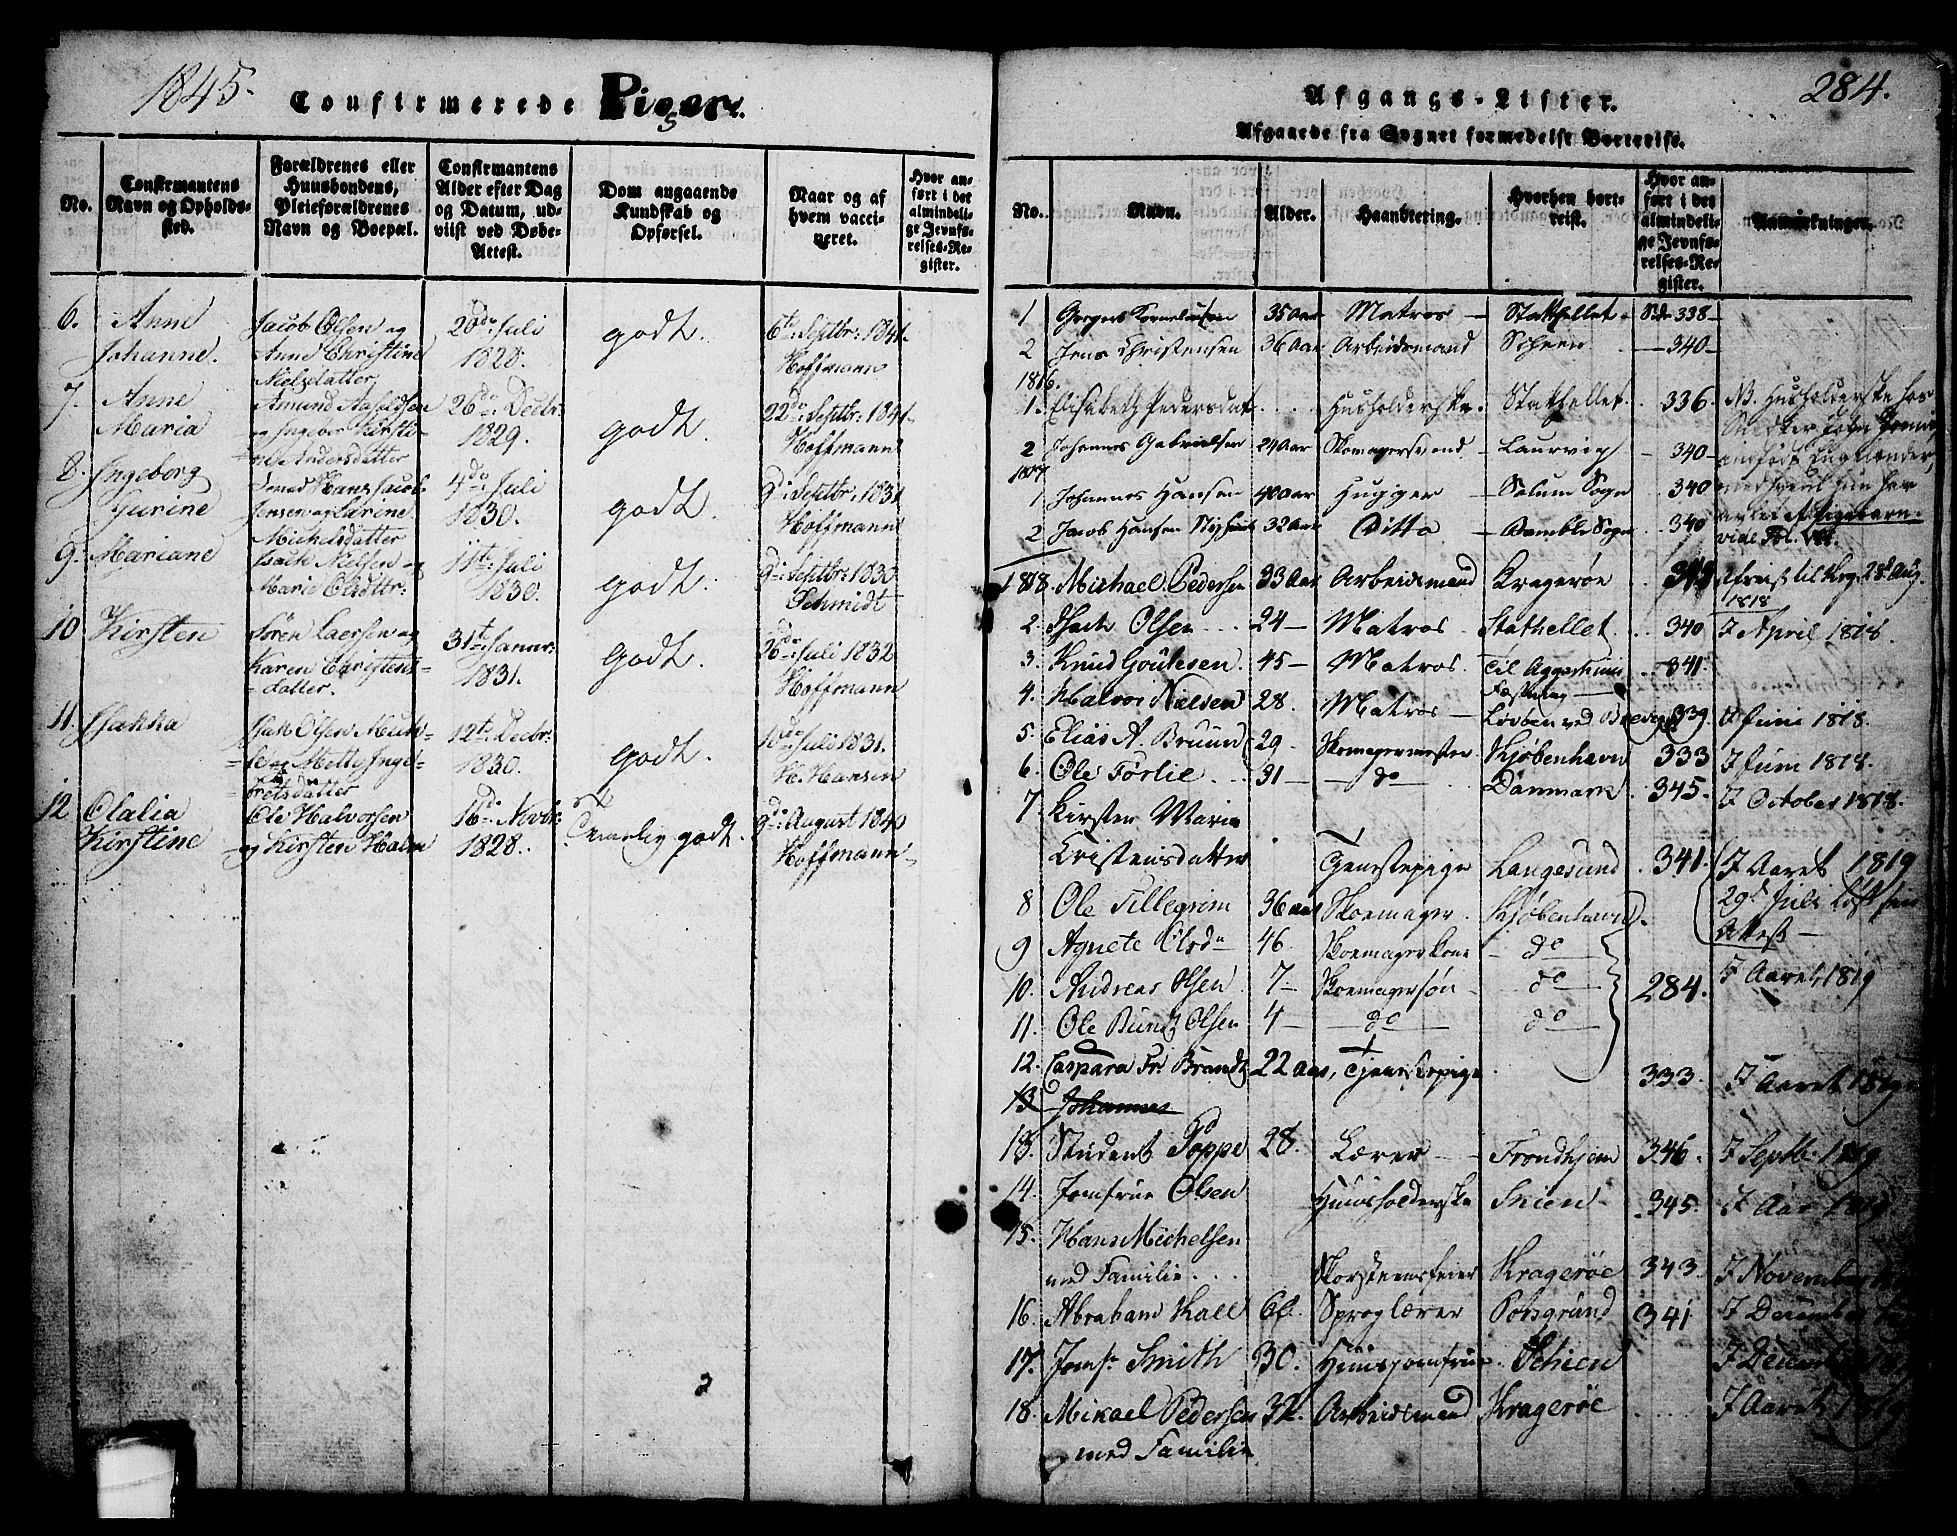 1845.
Confirmerede Piger.
No.
Confirmantens Navn og Opholdssted.
Forældrenes eller Huusbondens, Pleieforældrenes Navn og Boepæl.
Confirmantens Alder efter Dag og Datum, udviist ved Døbe-Attest.
Dom angaaende Kundskab og Opførsel.
Naar og af hvem vaccineret.
Hvor anført i det almindelige Jevnførelses-Register.
6. Anne Jacob Olsen og 20de Juli godt. 6te Septbr: 1841.
Johanne. Anne Christine 1828. Hoffmann
Nielsdatter
7. Anne Amund 26de Decbr: godt. 22de Septbr: 1841.
Maria og Ingebor Kirsti- 1829. Hoffmann
ne Andersdatter
8. Ingeborg Hans Jacob 4de Juli godt. 9de Septbr: 1831
Gurine Jensen og Karine 1830. Hoffmann
Michelsdatter
9. Mariane Isach Nielsen og 11te Juli godt. 9de Septbr: 1830
Marie Olsdttr: 1830. Schmidt
10 Kirsten Sören Laersen og 31te Januar godt. 26de Juli 1832
Karen Christens- 1831. Hoffmann
datter.
11. Isak Olsen 12te Decbr: godt. 10de Juli 1831.
1830. H. Hansen
12 Olalia Ole Halvorsen 16de Novbr: Temmelig godt. 9de August 1840
Kirstine og Kirsten Halm 1828. Hoffmann
284.
Afgangs-Lister.
Afgaaede fra Sognet formedelst Bortreise.
No.
Navn.
Alder.
Haandtering.
Hvorhen bortreist.
Hvor anført i det almindelige Jevnførelses-Register.
Anmærkninger.
1 Gregers Kornelius sen 35 Aar Matros Stathellet Side 338
2 Jens Christensen 36 Aar Arbeidsmand Scheen 340
1816.
1. Elisabeth Pedersdat. Husholderske. Stathellet. 336. NB. Husholderske hos
2 Johannes Gabrielsen 24 Aar Skomagersvend Laurvig 340
1817
1 Johannes Hansen 40 Aar Hugger Solum Sogn 340
2 Jacob Hansen 32 Aar Ditto Bamble Sogn 340
1818. Michael Pedersen 33 Aar Arbeidsmand Kragerøe 28d Aug. 1818
2. Isach Olsen 24 Matros Stathellet 340 I April 1818.
3. Knud Goutesen. 45 Matros. Til Aggershuus Fæstning 341.
4. Halvor Nielsen 28. Matros ved Brevig 339. I Juni 1818.
5. Elias A. Bruun 29. Skomagermester Kjøbenhavn 333 I Juni 1818.
6. Ole Førlie 31 do Danmark. 345. I October 1818.
7. Kirsten Maria
Cristensdatter Tjenestepige Langesund 341. I Aaret 1819
8 Ole Tillegrim 36 aar Skoemager. Kjøbenhavn. 29d Juli løst sin Attest
9 Agnete Olsdn 46. Skoemagerkone do
10. Andreas Olsen. 7 Skoemagersøn do 284. I Aaret 1819
11. Ole Bundz Olsen 4 do do
12. Caspara Fr. Brandt 22 aar, Tjenestepige 333. I Aaret 1819
13 Johannes
13. Student Poppe 28. Lærer Trondhjem 346. I Septb: 1819
14. Jomfrue Olsen Huusholderske Skien 345. I Aar 1819.
15. Hans Michelsen
med Familie Skorsteensfeier Kragerøe 343. I November
16. Abraham Kall Sproglærer Porsgrund 341 I December
17. Jomfr. Smith 30. Huusjomfrue Schien I December
18. Mikael Pedersen 32. Arbeidsmand Kragerøe I Aaret 1819
med Familie